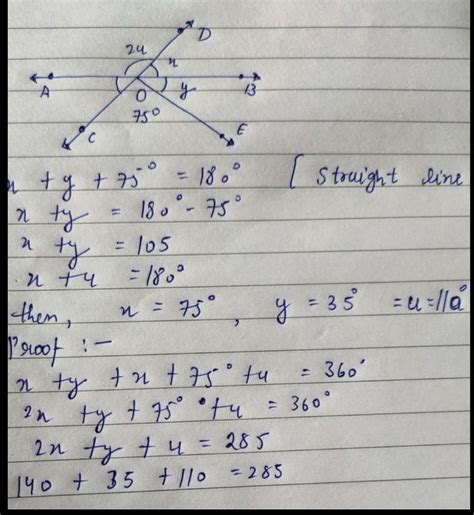 2u
D
x
A
O
y
B
75°
C
E
x + y + 75° = 180° [ Straight line
x + y = 180° - 75°
x + y = 105
x + u = 180°
then, x = 75°, y = 35° = u = 110°
Proof :-
x + y + x + 75° + u = 360°
2x + y + 75° + u = 360°
2x + y + u = 285
140 + 35 + 110 = 285